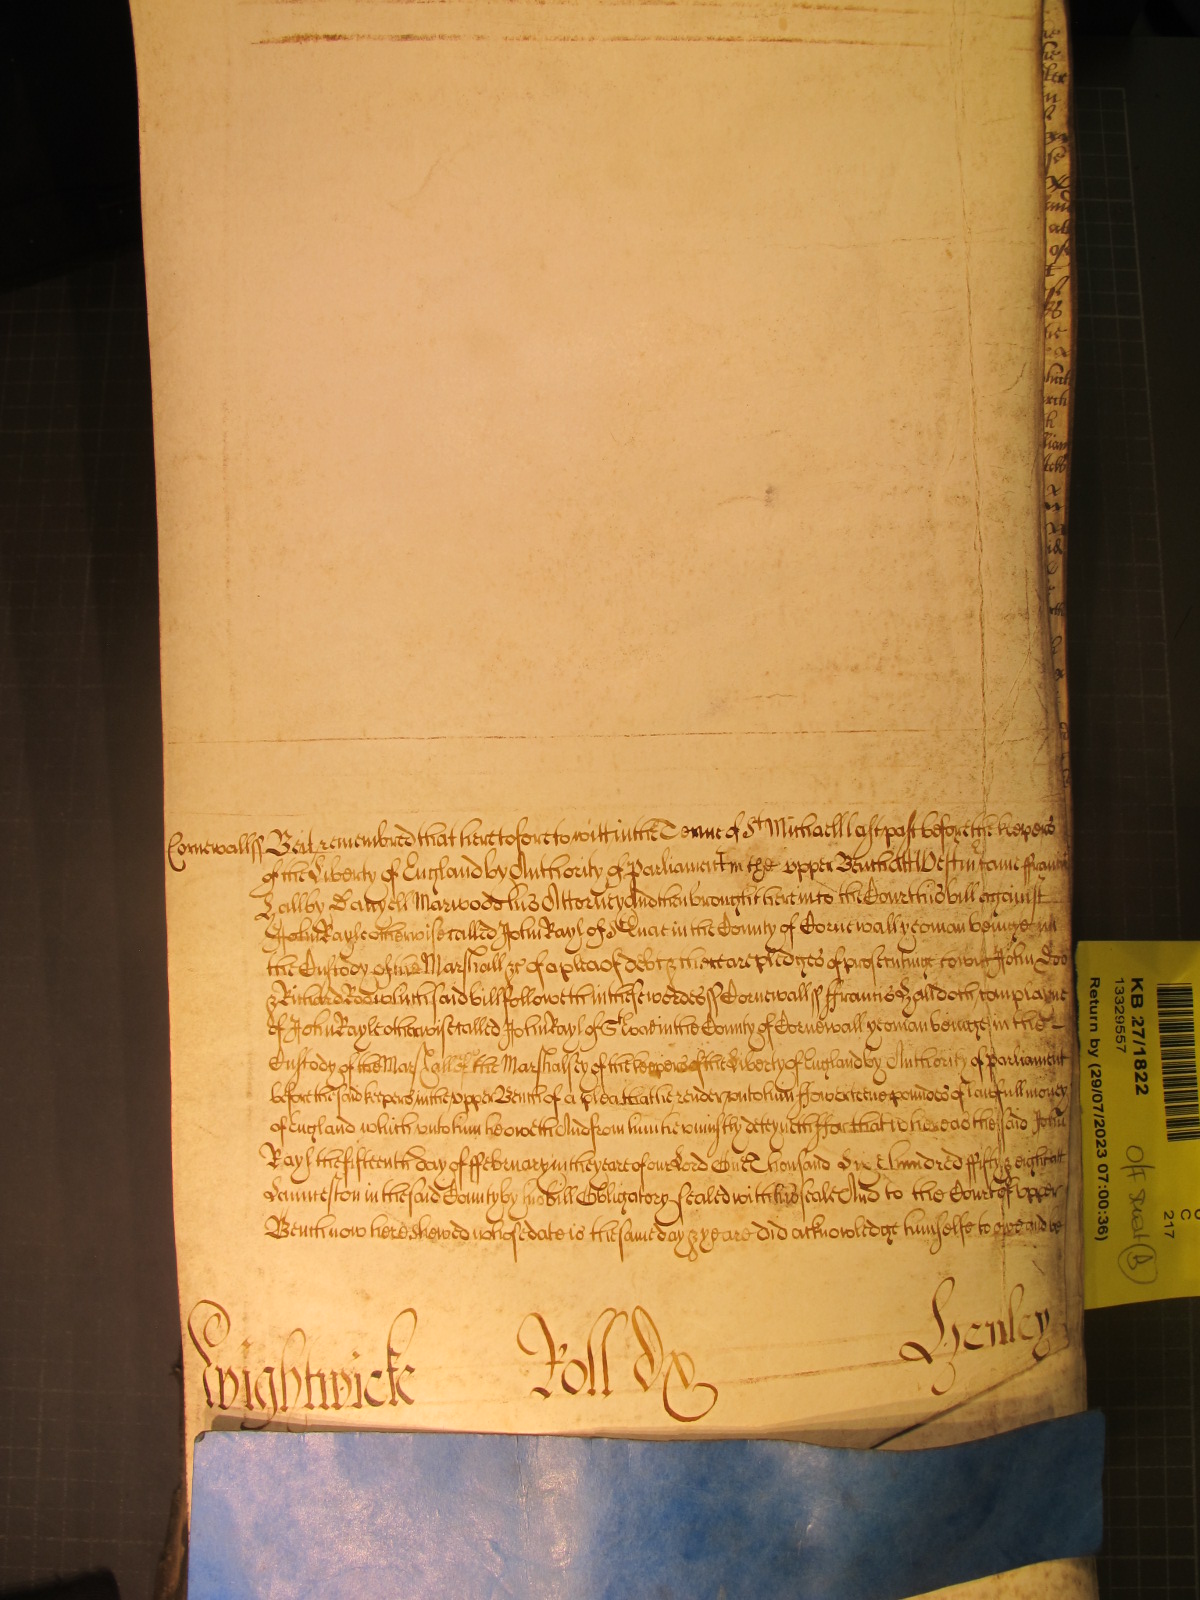 Cornewall ss Be it remembred that heretofore to witt in the Terme of St Michaell last past before the keepers
of the Liberty of England by Authority of Parliament in the upper Bench att Westm came Francis
Hall by Danyell Marwood his Attorney And then brought here into the Court his bill against
John Rayle otherwise called John Rayl of St in the County of Cornewall yeoman beinge in
the Custody of the Marshall &c of a plea of debt & there are pledges of prosecutinge to wit John Doo
& Richard Roo which said bill followeth in these wordes ss Cornewall ss Francis Hall doth complayne
of John Rayle otherwise called John Rayl of St in the County of Cornewall yeoman beinge in the
Custody of the Marshall of the Marshalsey of the keepers of the Liberty of England by Authority of parliament
before the said keepers in the upper Bench of a plea that he render unto him ffowerteene poundes of lawfull money
of England which unto him he oweth And from him he uniustly deteyneth ffor that whereas the said John
Rayl the fifteenth day of ffebruary in the yeare of our Lord One Thousand Six Hundred ffifty & eight att
Launceston in the said County by his bill Obligatory sealed with his seale And to the Court of upper
Bench now here shewed whose date is the same day & yeare did acknowledge himselfe to owe and be
Wightwicke Roll Henley
KB 27/1822
13329557
Return by (29/07/2023 07:00:36)
C
217
Off (B)